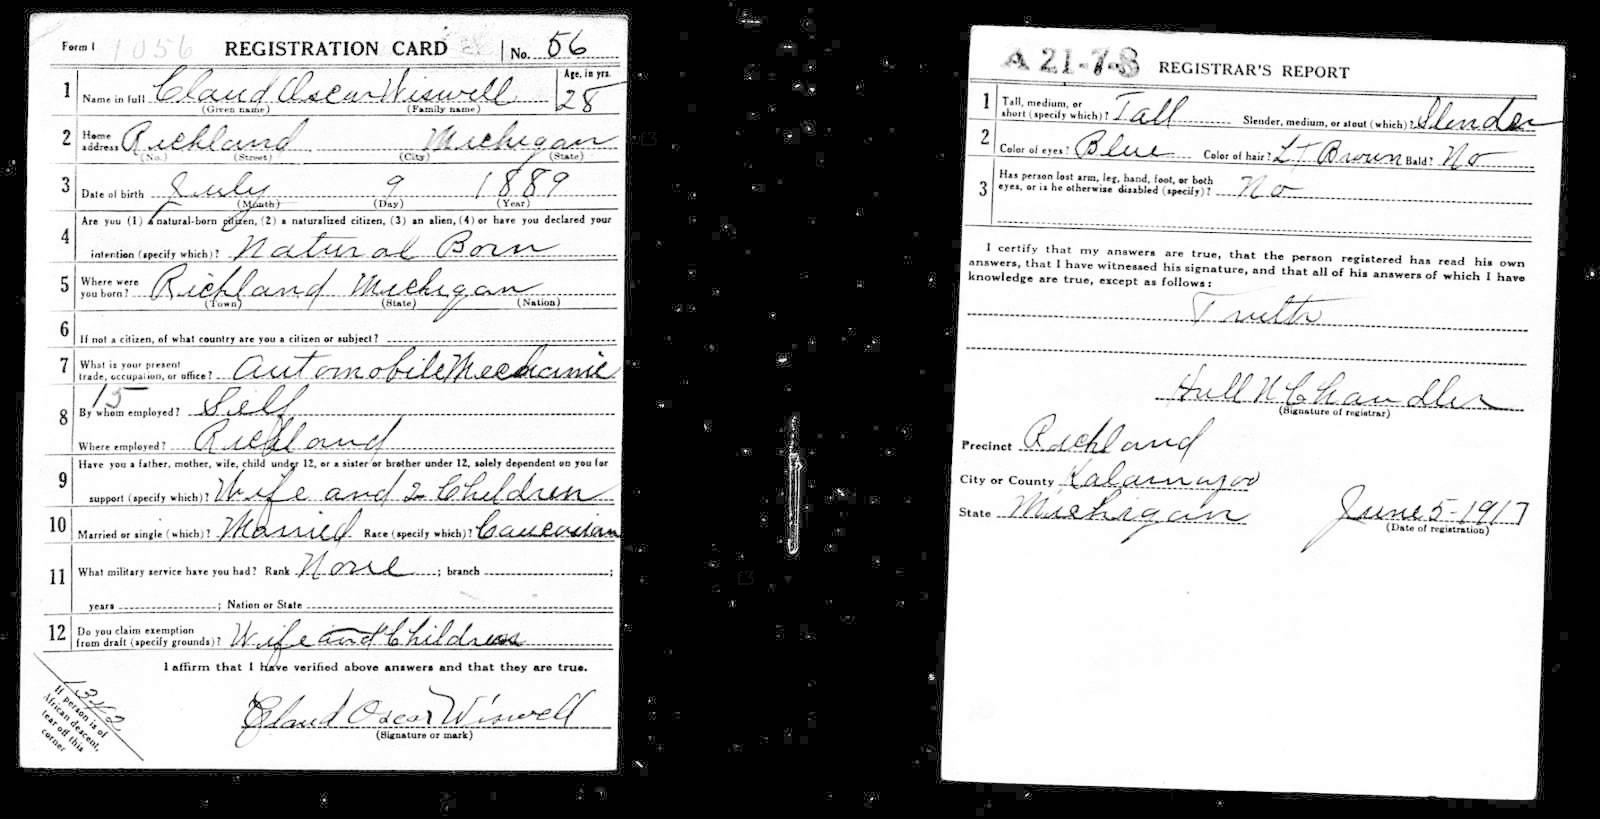 Form 1 1056 REGISTRATION CARD No. 56
1 Name in full Claud Oscar Wiswell Age, in yrs. 28
(Given name) (Family name)
2 Home address Richland Michigan
(No.) (Street) (City) (State)
3 Date of birth July 9 1889
(Month) (Day) (Year)
4 Are you (1) a natural-born citizen, (2) a naturalized citizen, (3) an alien, (4) or have you declared your
intention (specify which)? Natural Born
5 Where were you born? Richland Michigan
(Town) (State) (Nation)
6 If not a citizen, of what country are you a citizen or subject?
7 What is your present trade, occupation, or office? Automobile Mechanic
15
8 By whom employed? Self
Where employed? Richland
9 Have you a father, mother, wife, child under 12, or a sister or brother under 12, solely dependent on you for
support (specify which)? Wife and 2 Children
10 Married or single (which)? Married Race (specify which)? Caucasian
11 What military service have you had? Rank None ; branch ;
years ; Nation or State
12 Do you claim exemption from draft (specify grounds)? Wife and Children
I affirm that I have verified above answers and that they are true.
Claud Oscar Wiswell
(Signature or mark)
1342
If person is of
African descent,
tear off this
corner
A 21-7-8 REGISTRAR'S REPORT
1 Tall, medium, or short (specify which)? Tall Slender, medium, or stout (which)? Slender
2 Color of eyes? Blue Color of hair? LT Brown Bald? No
3 Has person lost arm, leg, hand, foot, or both
eyes, or is he otherwise disabled (specify)? No
I certify that my answers are true, that the person registered has read his own
answers, that I have witnessed his signature, and that all of his answers of which I have
knowledge are true, except as follows:
Truth
Hull N Chandler
(Signature of registrar)
Precinct Richland
City or County Kalamazoo
State Michigan June 5-1917
(Date of registration)